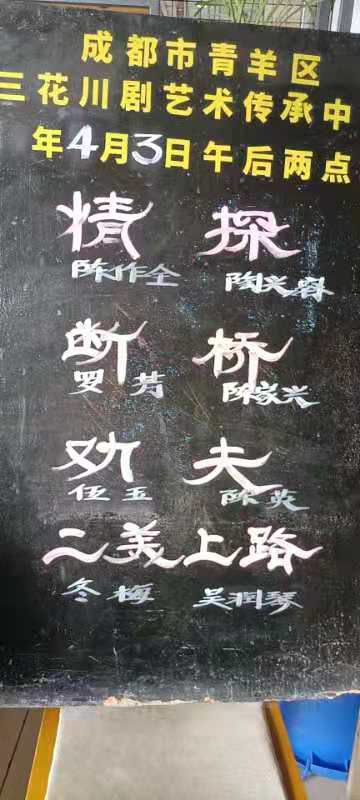 成都市青羊区
三花川剧艺术传承中
年4月3日午后两点
情 探
陈作全 陶兴容
断 桥
罗芳 陈家兴
劝 夫
伍玉 陈英
二美上路
冬梅 吴润琴